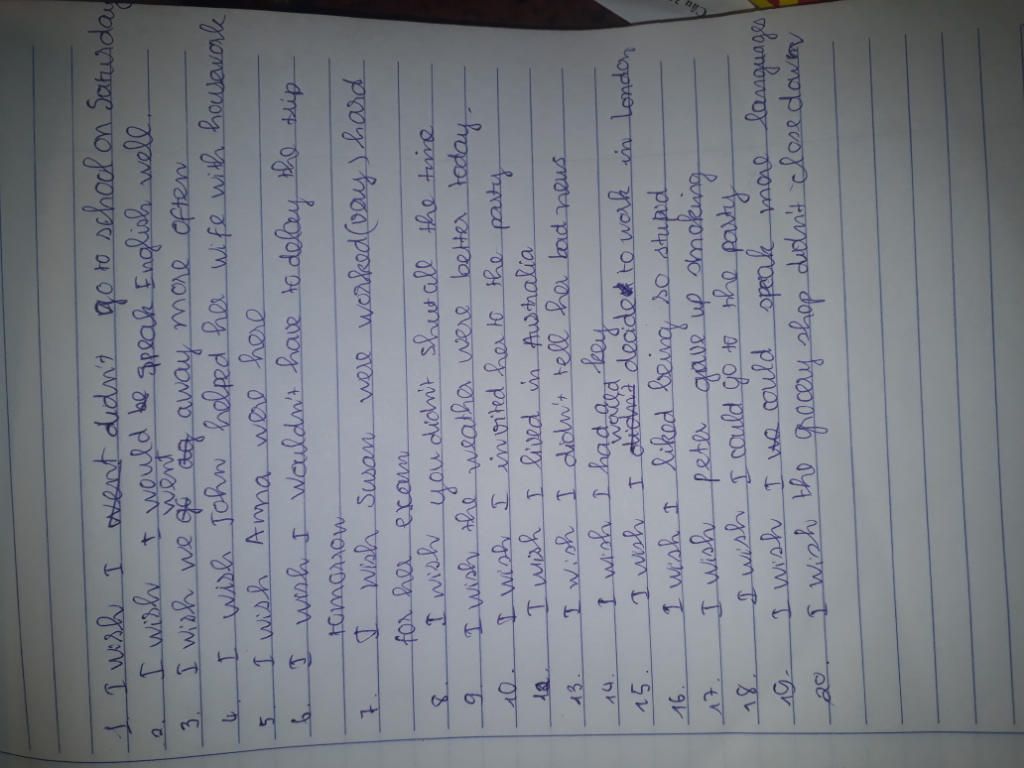 1. I wish I went didn't go to school on Saturday
2. I wish I would be speak English well.
went
3. I wish we go away more often
4. I wish John helped her wife with housework
5. I wish Anna were here
6. I wish I wouldn't have to delay the trip
tomorrow
7. I wish Suron were worked (very) hard
for her exam
8. I wish you didn't shut all the time
9. I wish the weather were better today.
10. I wish I invitd her to the party
12. I wish I lived in Australia
13. I wish I didn't tell her bad news
14. I wish I had key
would
15. I wish I didn't decide to work in London
16. I wish I liked being so stupid
17. I wish peter gave up smoking
18. I wish I could go to the party
19. I wish I could speak more languages
20. I wish the grocery shop didn't close down
Câu